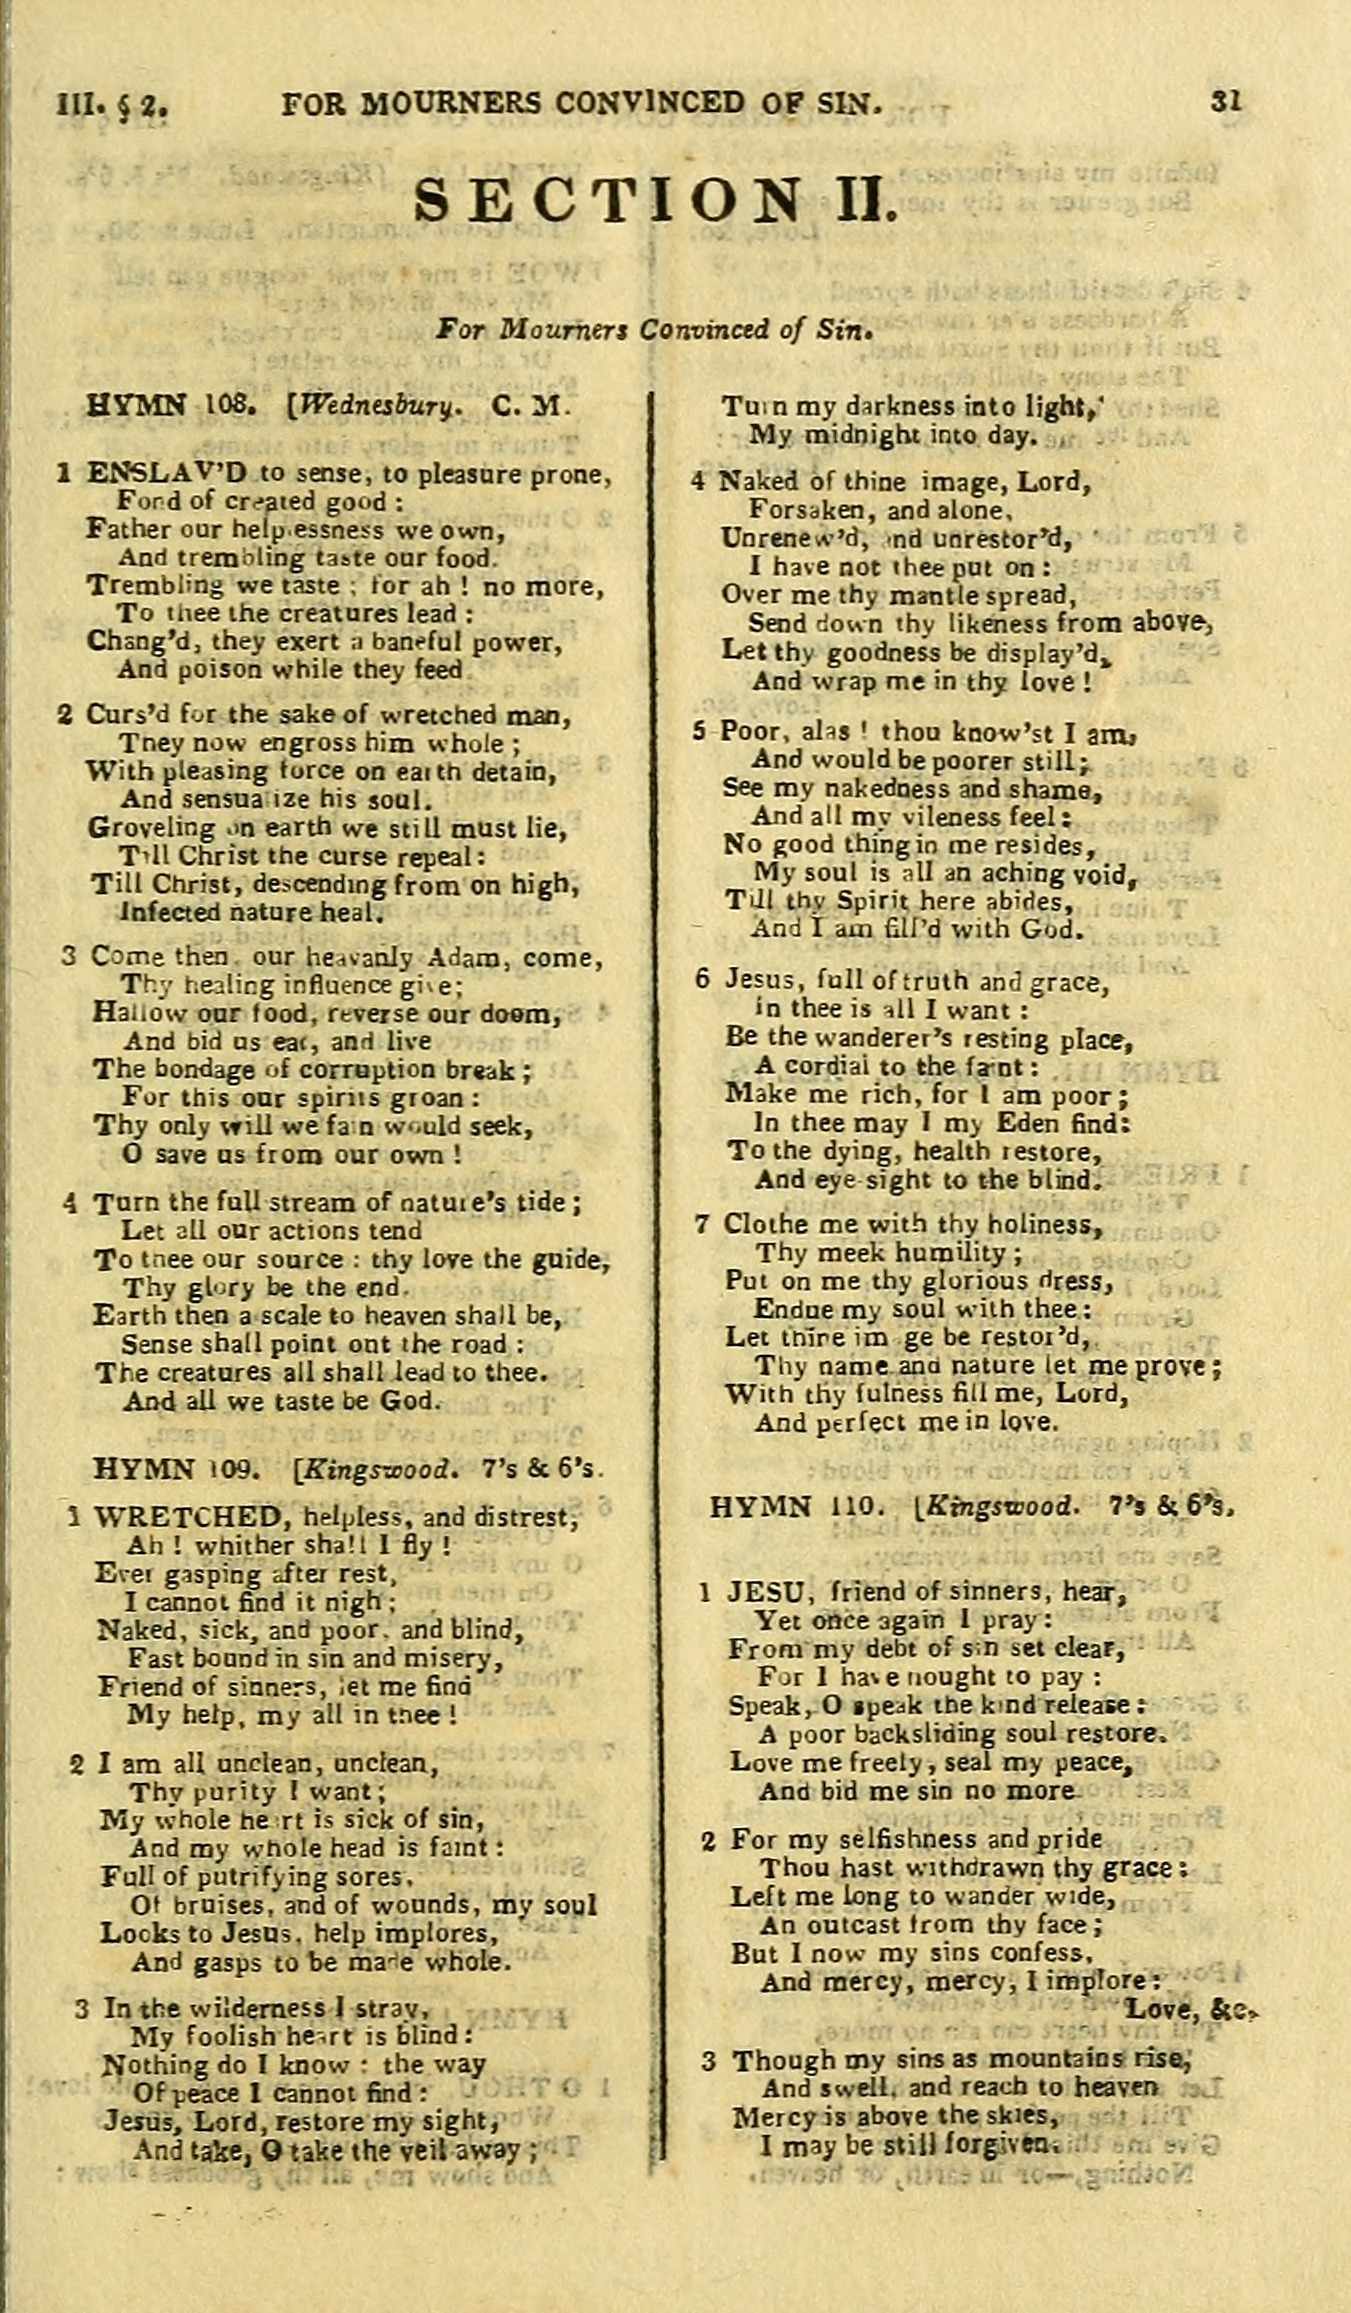 III. § 2. FOR MOURNERS CONVINCED OF SIN. 31
SECTION II.
For Mourners Convinced of Sin.
HYMN 108. [Wednesbury. C. M.
1 ENSLAV'D to sense, to pleasure prone,
Fond of created good :
Father our helplessness we own,
And trembling taste our food.
Trembling we taste ; for ah ! no more,
To thee the creatures lead :
Chang'd, they exert a baneful power,
And poison while they feed
2 Curs'd for the sake of wretched man,
They now engross him whole ;
With pleasing force on earth detain,
And sensualize his soul.
Groveling on earth we still must lie,
Till Christ the curse repeal :
Till Christ, descending from on high,
Infected nature heal.
3 Come then, our heavanly Adam, come,
Thy healing influence give;
Hallow our food, reverse our doom,
And bid us eat, and live
The bondage of corruption break ;
For this our spirits groan :
Thy only will we fain would seek,
O save us from our own !
4 Turn the full stream of nature's tide ;
Let all our actions tend
To thee our source : thy love the guide,
Thy glory be the end.
Earth then a scale to heaven shall be,
Sense shall point out the road :
The creatures all shall lead to thee.
And all we taste be God.
HYMN 109. [Kingswood. 7's & 6's.
1 WRETCHED, helpless, and distrest,
Ah ! whither shall I fly !
Ever gasping after rest,
I cannot find it nigh ;
Naked, sick, and poor, and blind,
Fast bound in sin and misery,
Friend of sinners, let me find
My help, my all in thee !
2 I am all unclean, unclean,
Thy purity I want ;
My whole heart is sick of sin,
And my whole head is faint :
Full of putrifying sores,
Of bruises, and of wounds, my soul
Looks to Jesus, help implores,
And gasps to be made whole.
3 In the wilderness I stray,
My foolish heart is blind :
Nothing do I know : the way
Of peace I cannot find :
Jesus, Lord, restore my sight,
And take, O take the veil away ;
Turn my darkness into light,
My midnight into day.
4 Naked of thine image, Lord,
Forsaken, and alone,
Unrenew'd, and unrestor'd,
I have not thee put on :
Over me thy mantle spread,
Send down thy likeness from above,
Let thy goodness be display'd,
And wrap me in thy love !
5 Poor, alas ! thou know'st I am,
And would be poorer still ;
See my nakedness and shame,
And all my vileness feel :
No good thing in me resides,
My soul is all an aching void,
Till thy Spirit here abides,
And I am fill'd with God.
6 Jesus, full of truth and grace,
In thee is all I want :
Be the wanderer's resting place,
A cordial to the faint :
Make me rich, for I am poor ;
In thee may I my Eden find:
To the dying, health restore,
And eye-sight to the blind.
7 Clothe me with thy holiness,
Thy meek humility ;
Put on me thy glorious dress,
Endue my soul with thee :
Let thine image be restor'd,
Thy name and nature let me prove ;
With thy fulness fill me, Lord,
And perfect me in love.
HYMN 110. [Kingswood. 7's & 6's.
1 JESU, friend of sinners, hear,
Yet once again I pray :
From my debt of sin set clear,
For I have nought to pay :
Speak, O speak the kind release :
A poor backsliding soul restore.
Love me freely, seal my peace,
And bid me sin no more
2 For my selfishness and pride
Thou hast withdrawn thy grace :
Left me long to wander wide,
An outcast from thy face ;
But I now my sins confess,
And mercy, mercy, I implore :
Love, &c.
3 Though my sins as mountains rise,
And swell, and reach to heaven
Mercy is above the skies,
I may be still forgiven.